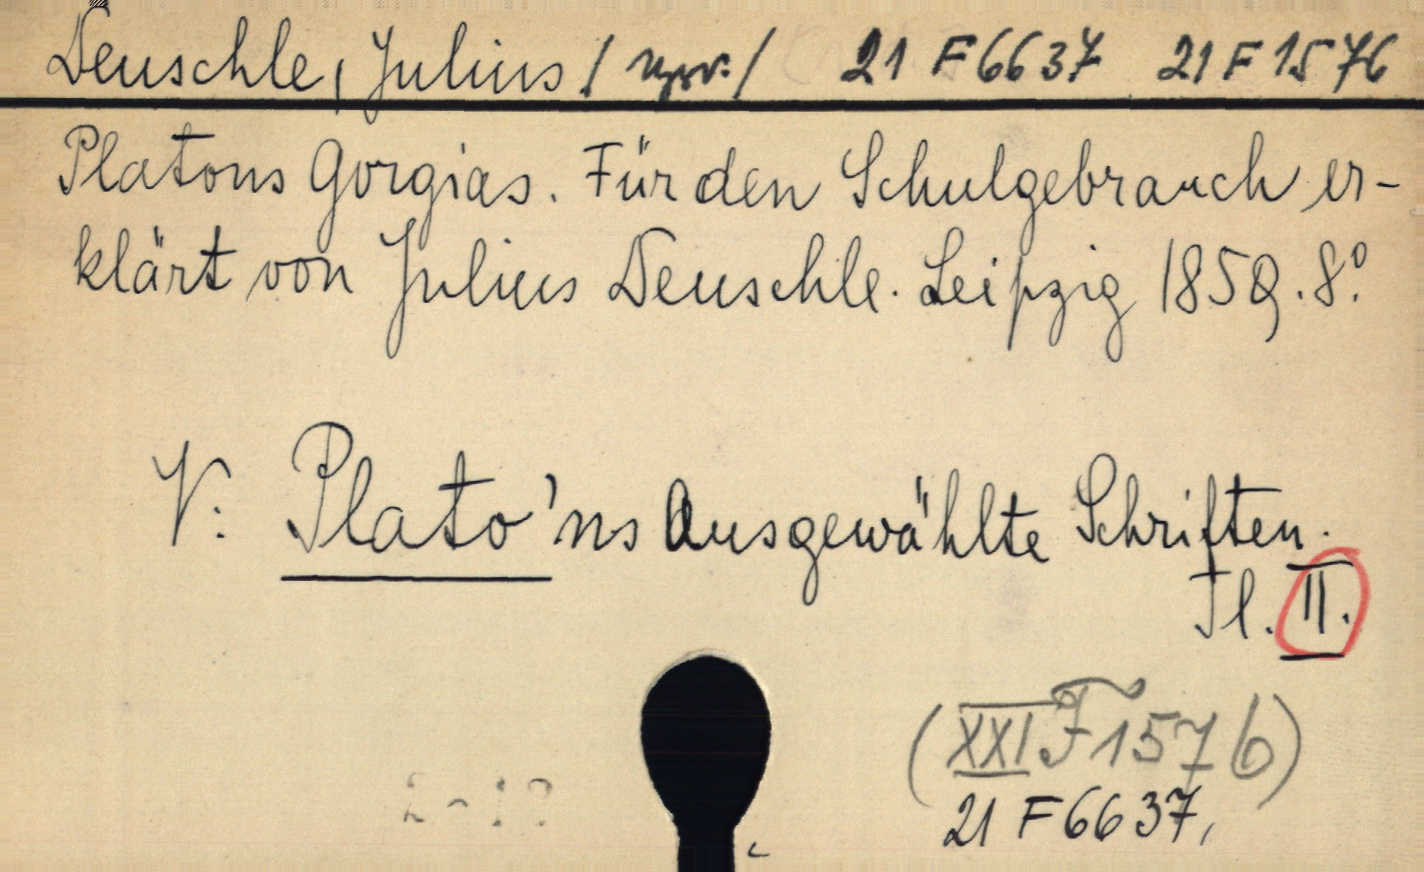 Deuschle, Julius / upr. / 21 F 6637 21 F 1576
Platons Gorgias. Für den Schulgebrauch er-
klärt von Julius Deuschle. Leipzig 1859. 8º.
V: Plato'ns Ausgewählte Schriften.
Tl. II.
(XXI F 1576)
21 F 6637,